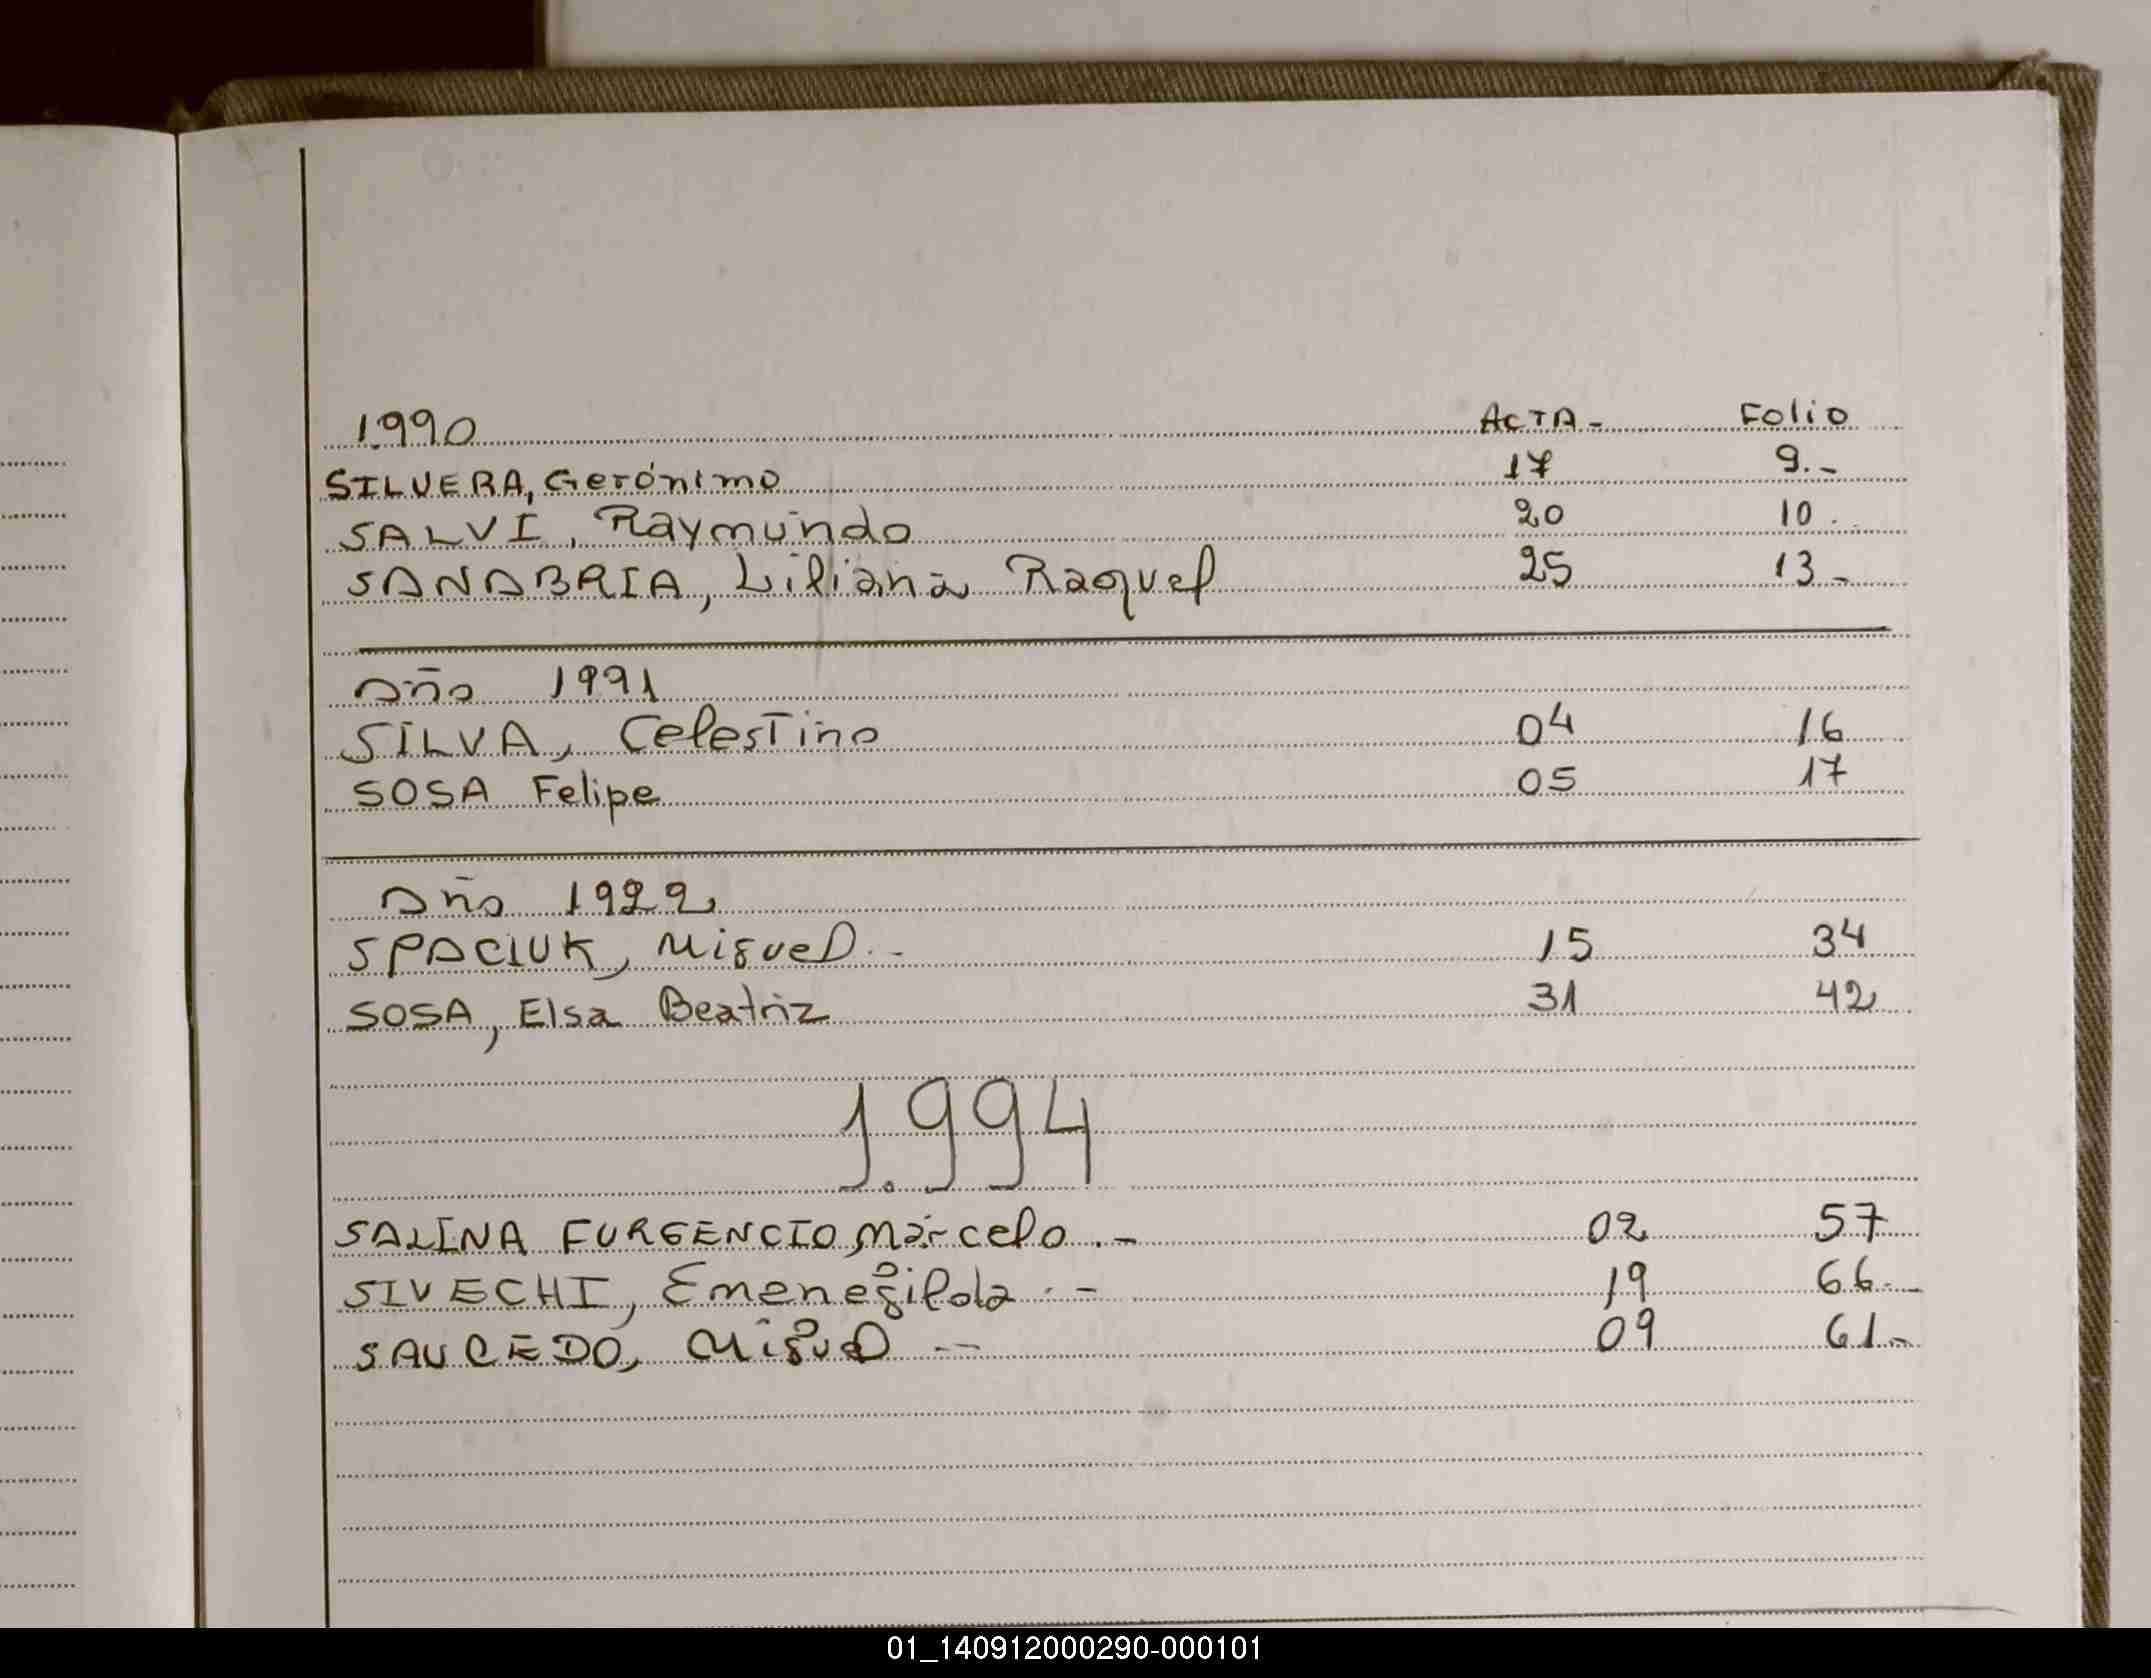 1.990 ACTA- Folio
SILVERA, Gerónimo 17 9.-
SALVI, Raymundo 20 10.
SANABRIA, Liliana Raquel 25 13-
Año 1991
SILVA, Celestino 04 16
SOSA Felipe 05 17
Año 1992
SPACIUK, Miguel.- 15 34
SOSA, Elsa Beatriz 31 42
1.994
SALINA FURGENCIO, Marcelo.- 02 57
SIVECHI, Emenegilda.- 19 66.-
SAUCEDO, Miguel -- 09 61.-
01_140912000290-000101